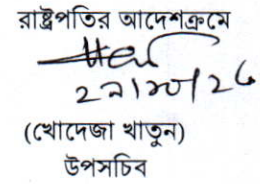 রাষ্ট্রপতির আদেশক্রমে
(খোদেজা খাতুন)
উপসচিব